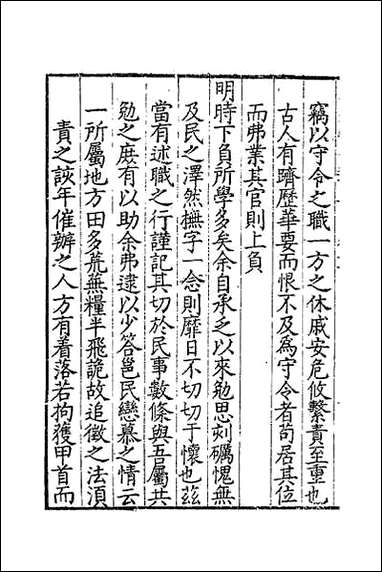 竊以守令之職一方之休戚安危攸繫責至重也
古人有躋歷華要而恨不及爲守令者苟居其位
而弗業其官則上負
明時下負所學多矣余自承之以來勉思刻礪愧無
及民之澤然撫字一念則靡日不切切于懷也茲
當有述職之行謹記其切於民事數條與吾屬共
勉之庶有以助余弗逮以少答邕民戀慕之情云
一所屬地方田多荒蕪糧半飛詭故追徵之法湏
責之該年催辦之人方有着落若拘獲甲首而